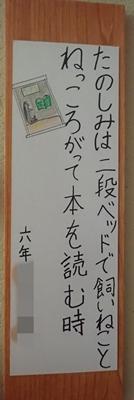 たのしみは二段ベッドで飼いねこと
ねっころがって本を読む時
六年